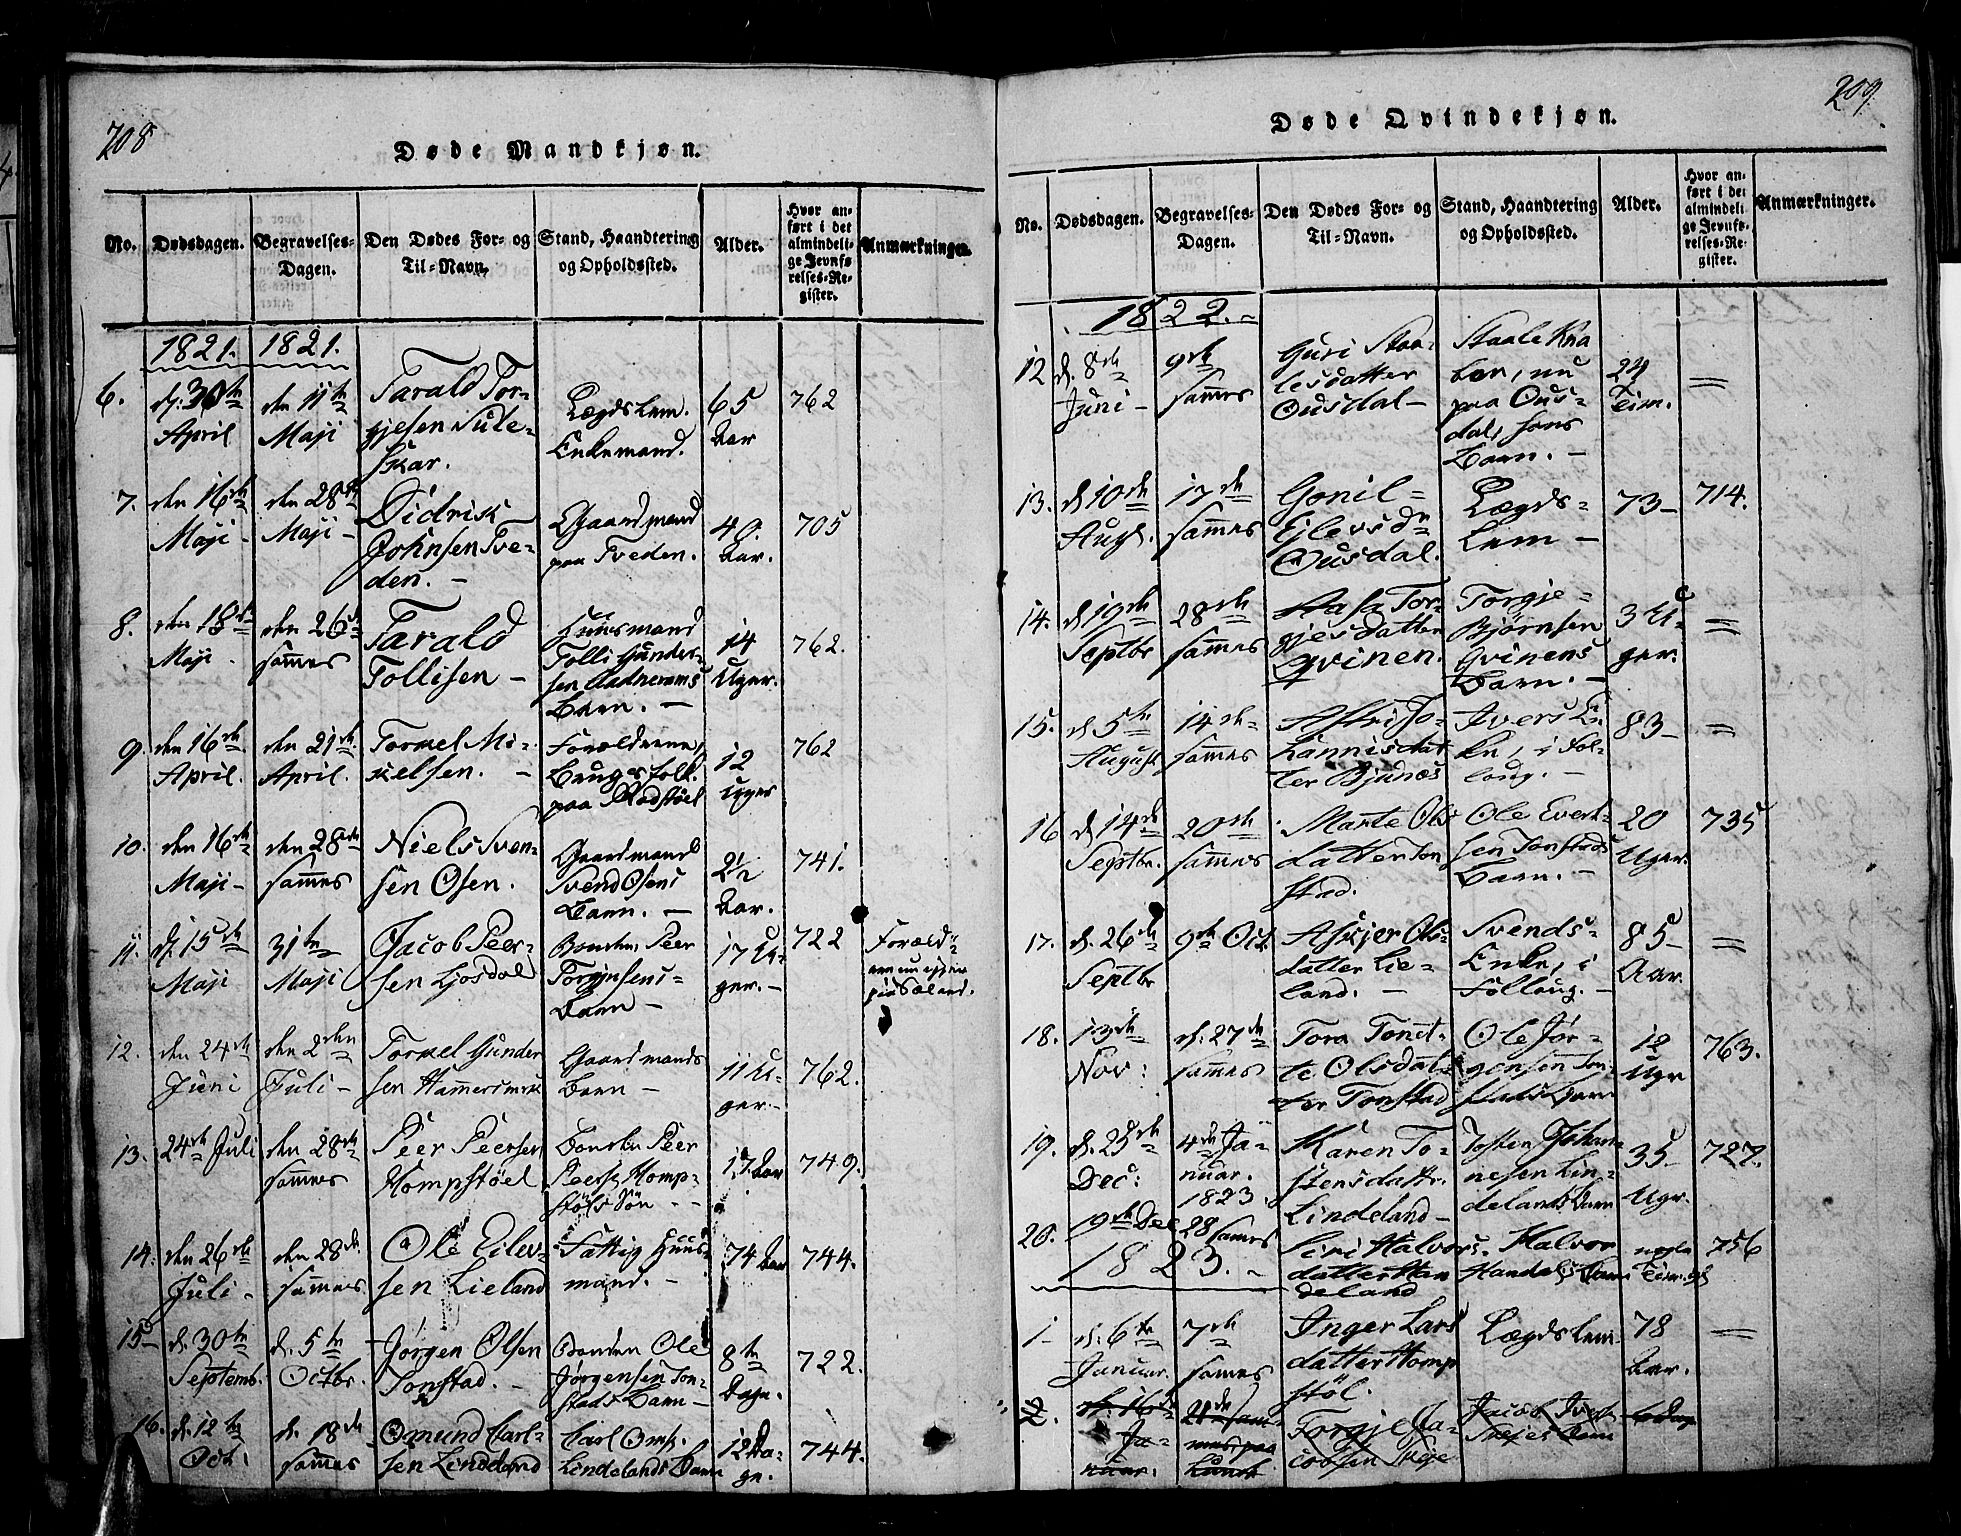 708
Døde Mandkjøn.
No.
Dødsdagen.
Begravelses-
Dagen.
Den Dødes For- og
Til-Navn.
Stand, Haandtering
og Opholdssted.
Alder.
Hvor an-
ført i det
almindeli-
ge Jevnfø
relses-Re-
gister.
Anmærkninger.
1821. 1821.
6.
d. 30te
April
den 11te
Maji
Tarald Tor-
gjesen Sule-
skar.
Lægdslem.
Enkemand.
65
Aar
762
7.
den 16de
Maji
den 28de
Maji
Didrik
Johnsen Tve-
den.
Gaardmand
paa Tveden.
49
Aar.
705
8.
den 18de
Maji
den 26de
sammes
Tarald
Tollisen
Huusmand
Tolli Gunder-
sen
Barn.
14
Uger.
762.
9.
den 16de
April.
den 21de
April.
Tormel Mi-
kelsen.
Forældrene
Brugesfolk.
paa
12
Uger
762
10.
den 16de
Maji
den 28de
sammes
Niels Sven-
sen Osen.
Gaardmand
Svend Osens
Barn.
2½
Aar.
741.
11.
d. 15de
Maji
31te
Maji
Jacob Peer-
sen Josdal
Bonden Peer
Torgjusens
Barn
17 U-
ger.
722
Foræld-
12.
den 24de
Juni
den 2den
Juli
Tormel Gunder
sen Hamersmrk
Gaardmands
Barn
11 U-
ger.
762.
13.
24de Juli
den 28de
sammes
Peer Peersen
Hompstøel
Bonden Peer
Peers. Homp-
støls Søn
17 Aar
749.
14.
den 26de
Juli
den 28de
sammes
Ole Eilev-
sen Lieland
Fattig Huus-
mand.
74 Aar
744.
15
d. 30te
Septemb.
d. 5te
Octbr.
Jørgen Olsen
Tonstad.
Bonden Ole
Jørgensen Ton-
stads Barn
8te
Dage.
722.
16.
d. 12te
Oct.
d. 18de
sammes
Omund Carl-
sen Lindeland
Carl Oms.
Lindelands Barn
12 Da-
ge.
744.
209.
Døde Qvindekjøn.
No.
Dødsdagen.
Begravelses-
Dagen.
Den Dødes For- og
Til-Navn.
Stand, Haandtering
og Opholdssted.
Alder.
Hvor an-
ført i det
almindeli-
ge Jevnfø-
relses-Re-
gister.
Anmærkninger.
1822.
12
d. 8de
Juni
9de
sammes
Guri Staa-
lesdatter
Ousdal
Staale Kna
ben, nu
paa Ous-
dal, hans
Barn.
24
Teim.
=
13.
d. 10de
Augs.
17de
sammes
Gonil
Ejlevsdr
Ousdal.
Lægds-
Lem
73
714.
14.
d. 19de
Septbr
28de
sammes
Aasa Tor-
gjesdatter
Qvinen.
Torgje
Bjørnsen
Qvinens
Barn.
3 U-
ger.
=
15.
d. 5te
August
14de
sammes
Astri Jo-
hannisdat
ter Bjunes
Ivers En
ke, i Fol-
loug.
83
=
16
d. 14de
Septbr.
20de
sammes
Marte Ols
datter Ton
stad.
Ole Evert-
sen Tonstads
Barn.
20
Uger.
735
17.
d. 26de
Septbr
9de Oct
Askjer Ols-
datter Lie-
land.
Svends
Enke, i
Folloug.
85
Aar.
=
18.
13de
Nov:
d. 27de
sammes
Tora Tonet-
te Olsdat-
ter Tonstad
Ole Jør-
gensen Ton-
stads Barn
12
Ugr
763.
19.
d. 25de
Dec:
4de Ja-
nuar.
1823
Karen To-
stensdattr.
Lindeland
Tosten Johan-
nesen Lin-
delands Barn
35
Ugr.
727.
20.
19de Dec
28 sammes
Siri Halvors-
datter Han
deland
Halvor
Handelands Barn
nogle
Teimer
756
1823.
1
d. 6te
Januar.
7de
sammes
Inger Lars
datter Homp
støl.
Lægdslem
78
Aar.
=
2.
d. 16de
Ja-
nuar.
21de sam-
mes, paa
Lunde
Torgje Ja-
cobsen
Jacob
6 Dage